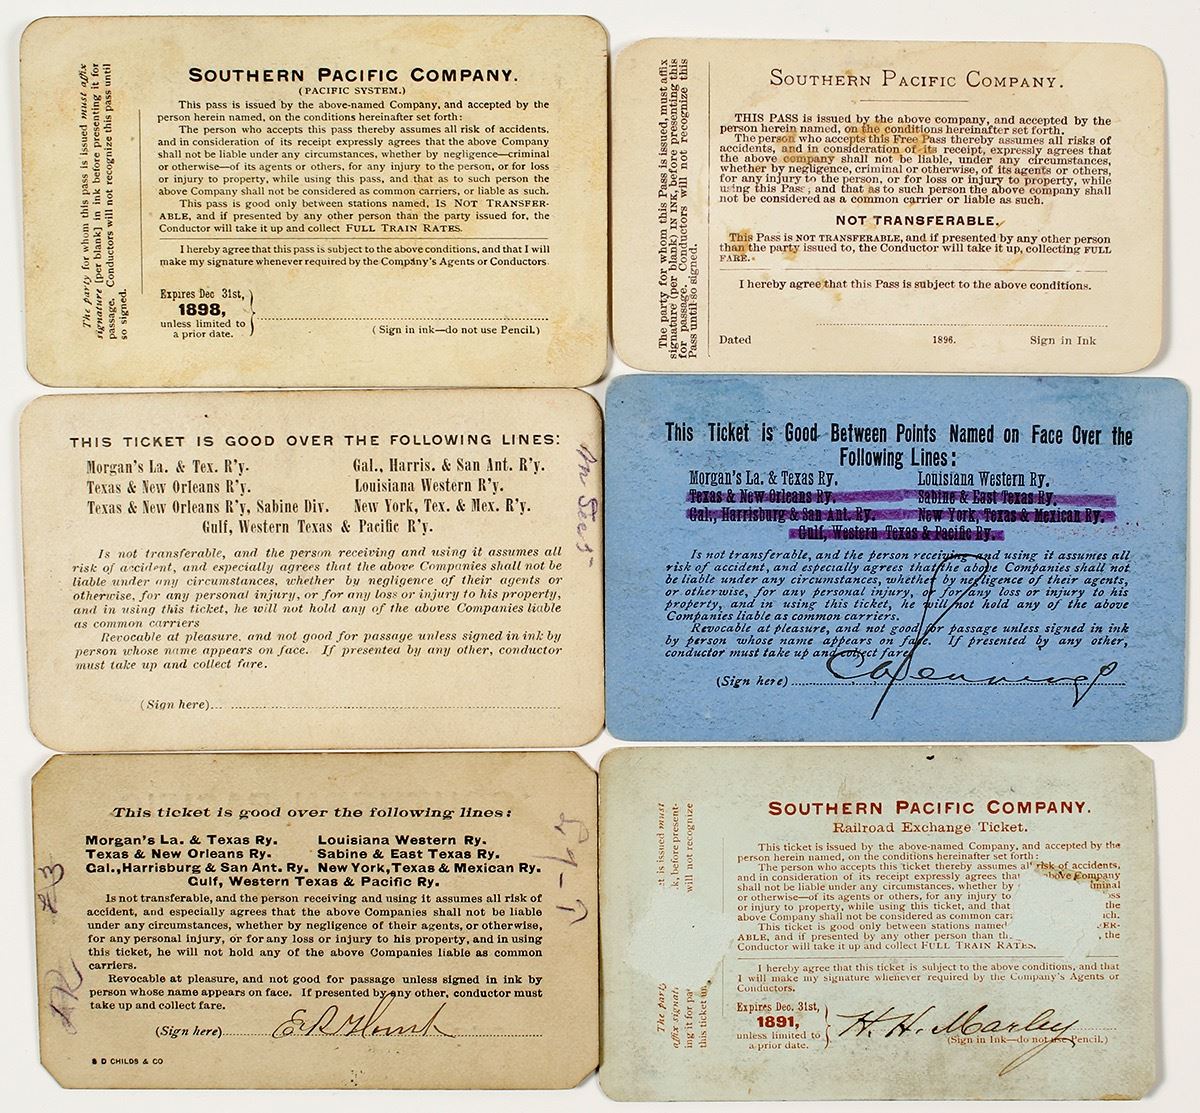 The party for whom this pass is issued must affix
signature [per blank] in ink before presenting it for
passage. Conductors will not recognize this pass until
so signed.
SOUTHERN PACIFIC COMPANY.
(PACIFIC SYSTEM.)
This pass is issued by the above-named Company, and accepted by the
person herein named, on the conditions hereinafter set forth:
The person who accepts this pass thereby assumes all risk of accidents,
and in consideration of its receipt expressly agrees that the above Company
shall not be liable under any circumstances, whether by negligence—criminal
or otherwise—of its agents or others, for any injury to the person, or for loss
or injury to property, while using this pass, and that as to such person the
above Company shall not be considered as common carriers, or liable as such.
This pass is good only between stations named, IS NOT TRANSFER-
ABLE, and if presented by any other person than the party issued for, the
Conductor will take it up and collect FULL TRAIN RATES.
I hereby agree that this pass is subject to the above conditions, and that I will
make my signature whenever required by the Company's Agents or Conductors
Expires Dec 31st,
1898,
unless limited to
a prior date.
(Sign in ink—do not use Pencil.)
The party for whom this Pass is issued, must affix
signature (per blank) IN INK, before presenting this
for passage. Conductors will not recognize this
Pass until so signed.
SOUTHERN PACIFIC COMPANY.
THIS PASS is issued by the above company, and accepted by the
person herein named, on the conditions hereinafter set forth.
The person who accepts this Free Pass thereby assumes all risks of
accidents, and in consideration of its receipt, expressly agrees that
the above company shall not be liable, under any circumstances,
whether by negligence, criminal or otherwise, of its agents or others,
for any injury to the person, or for loss or injury to property, while
using this Pass; and that as to such person the above company shall
not be considered as a common carrier or liable as such.
NOT TRANSFERABLE.
This Pass is NOT TRANSFERABLE, and if presented by any other person
than the party issued to, the Conductor will take it up, collecting FULL
FARE.
I hereby agree that this Pass is subject to the above conditions.
Dated 1896. Sign in Ink
THIS TICKET IS GOOD OVER THE FOLLOWING LINES:
Morgan's La. & Tex. R'y. Gal., Harris. & San Ant. R'y.
Texas & New Orleans R'y. Louisiana Western R'y.
Texas & New Orleans R'y, Sabine Div. New York, Tex. & Mex. R'y.
Gulf, Western Texas & Pacific R'y.
Is not transferable, and the person receiving and using it assumes all
risk of accident, and especially agrees that the above Companies shall not be
liable under any circumstances, whether by negligence of their agents or
otherwise, for any personal injury, or for any loss or injury to his property,
and in using this ticket, he will not hold any of the above Companies liable
as common carriers
Revocable at pleasure. and not good for passage unless signed in ink by
person whose name appears on face. If presented by any other, conductor
must take up and collect fare.
(Sign here)
This Ticket is Good Between Points Named on Face Over the
Following Lines:
Morgan's La. & Texas Ry. Louisiana Western Ry.
Texas & New Orleans Ry. Sabine & East Texas Ry.
Gal., Harrisburg & San Ant. Ry. New York, Texas & Mexican Ry.
Gulf, Western Texas & Pacific Ry.
Is not transferable, and the person receiving and using it assumes all
risk of accident, and especially agrees that the above Companies shall not
be liable under any circumstances, whether by negligence of their agents,
or otherwise, for any personal injury, or for any loss or injury to his
property, and in using this ticket, he will not hold any of the above
Companies liable as common carriers.
Revocable at pleasure, and not good for passage unless signed in ink
by person whose name appears on face. If presented by any other,
conductor must take up and collect fare.
(Sign here)
This ticket is good over the following lines:
Morgan's La. & Texas Ry. Louisiana Western Ry.
Texas & New Orleans Ry. Sabine & East Texas Ry.
Gal., Harrisburg & San Ant. Ry. New York, Texas & Mexican Ry.
Gulf, Western Texas & Pacific Ry.
Is not transferable, and the person receiving and using it assumes all risk of
accident, and especially agrees that the above Companies shall not be liable
under any circumstances, whether by negligence of their agents, or otherwise,
for any personal injury, or for any loss or injury to his property, and in using
this ticket, he will not hold any of the above Companies liable as common
carriers.
Revocable at pleasure, and not good for passage unless signed in ink by
person whose name appears on face. If presented by any other, conductor must
take up and collect fare.
(Sign here)
S D CHILDS & CO
The party
affix signat
ing it for pa
this ticket un
is issued must
before present-
will not recognize
SOUTHERN PACIFIC COMPANY.
Railroad Exchange Ticket.
This ticket is issued by the above-named Company, and accepted by the
person herein named, on the conditions hereinafter set forth:
The person who accepts this ticket thereby assumes all risk of accidents,
and in consideration of its receipt expressly agrees that above Company
shall not be liable under any circumstances, whether by minal
or otherwise—of its agents or others, for any injury to
or injury to property, while using this ticket, and that the
above Company shall not be considered as common car
This ticket is good only between stations named ER-
ABLE, and if presented by any other person than th , the
Conductor will take it up and collect FULL TRAIN RATES.
I hereby agree that this ticket is subject to the above conditions, and that
I will make my signature whenever required by the Company's Agents or
Conductors.
Expires Dec. 31st,
1891,
unless limited to
a prior date.
H. H. Marley
(Sign in Ink—do not use Pencil.)